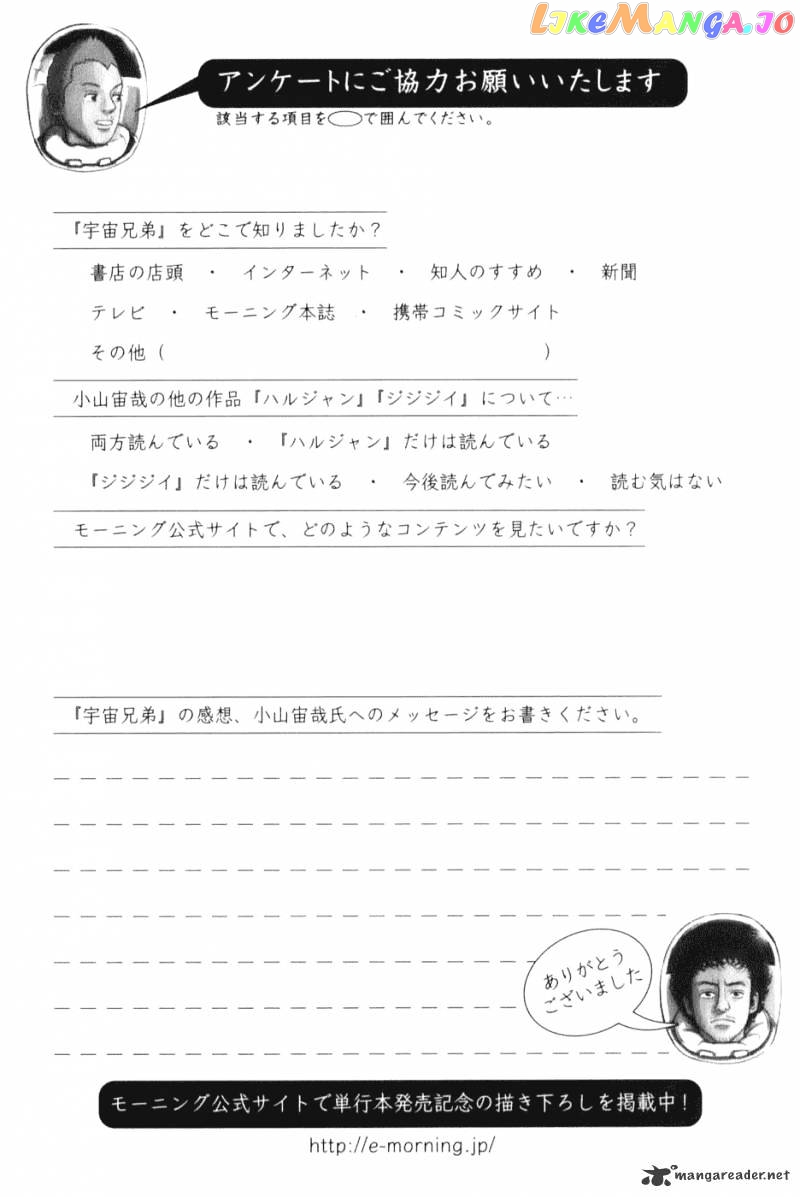 LIKEMANGA.IO
アンケートにご協力お願いいたします
該当する項目を◯で囲んでください。
『宇宙兄弟』をどこで知りましたか？
書店の店頭 ・ インターネット ・ 知人のすすめ ・ 新聞
テレビ ・ モーニング本誌 ・ 携帯コミックサイト
その他（ ）
小山宙哉の他の作品『ハルジャン』『ジジジイ』について…
両方読んでいる ・ 『ハルジャン』だけは読んでいる
『ジジジイ』だけは読んでいる ・ 今後読んでみたい ・ 読む気はない
モーニング公式サイトで、どのようなコンテンツを見たいですか？
『宇宙兄弟』の感想、小山宙哉氏へのメッセージをお書きください。
ありがとう
ございました
モーニング公式サイトで単行本発売記念の描き下ろしを掲載中！
http://e-morning.jp/
mangareader.net